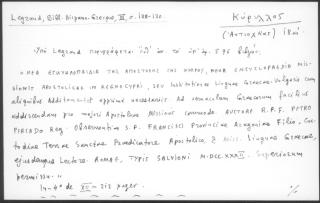 Legrand, Bibl. Hispano-Grecque, III, σ. 128-130.
Κύριλλος
(Ἀντιοχίας) 18ου
Ὑπὸ Legrand περιγράφεται
575
Η ΝΕΑ ΕΓΚΥΚΛΟΠΑΙΔΙΑ ΤΗΣ ΑΠΟΣΤΟΛΗΣ ΤΗΣ ΚΥΠΡΟΥ, NOVA ENCYCLOPAEDIA MIS-
SIONIS APOSTOLICAE IN REGNO CYPRI, seu Institutiones Linguae Graecae-Vulgaris cum
aliquibus Additamentis apprime necessariis Ad consulatum Graecorum facilius
addiscendam pro majori Apostolicae Missionis commodo. AUCTORE R.P.F. PETRO
MERCADO Reg. Observantiae S.P. FRANCISCI Provinciae Filio,
Terrae Sanctae Praedicatore Apostolico, & Linguae Graecae,
ejusdemque Lectore. ROMAE, TYPIS SALVIONI M.DCC.XXXII. Superiorum
permissu.
In-4º de XII